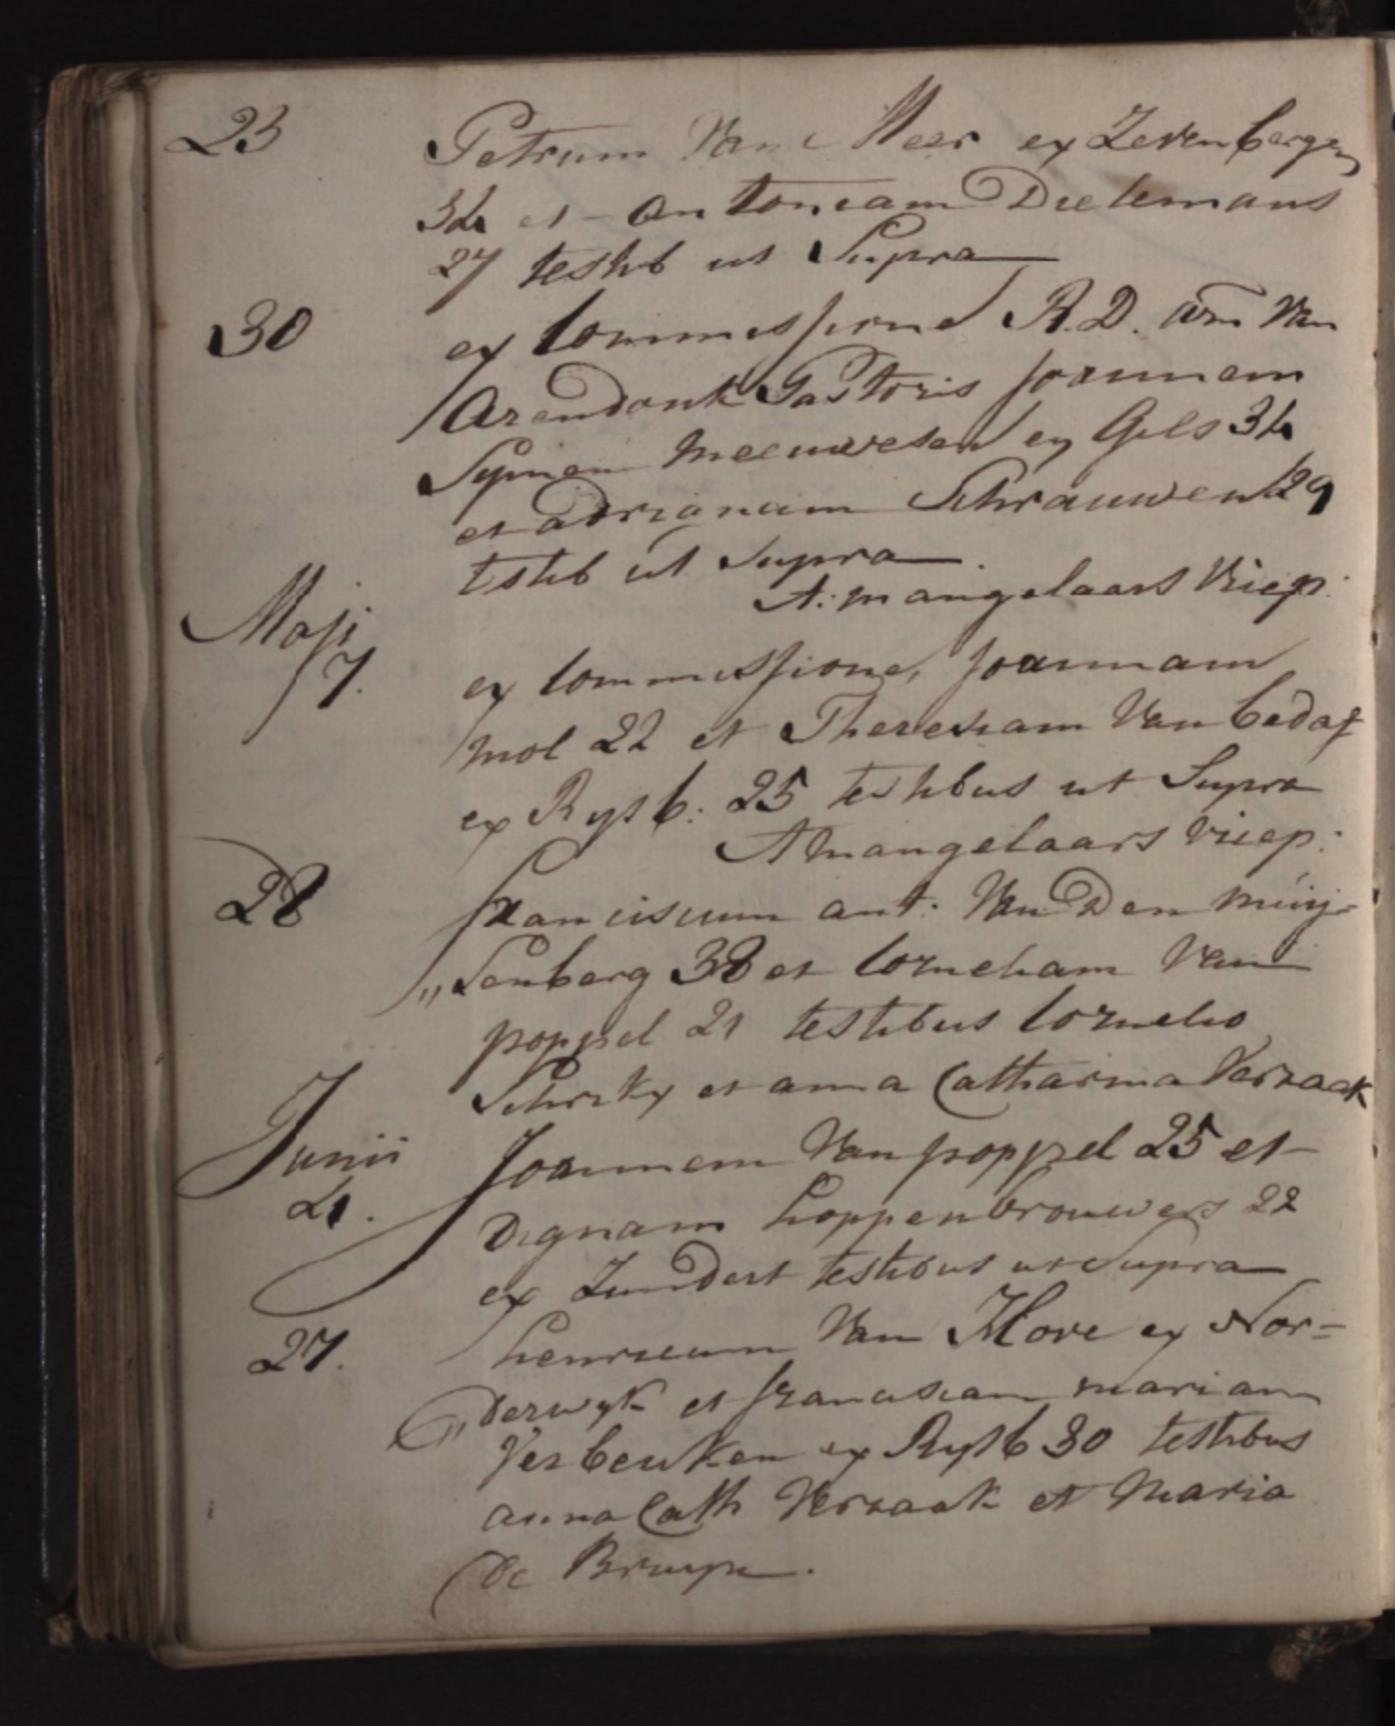 23 Petrum Van Meer ex Zevenbergen
34 et Antoniam Dielemans
27 testib ut Supra
30 ex Commissione R.D. Van
Arendonk Pastoris Joannem
Symon Meeuwesen ex Gils 34
et adrianam Schrauwen 29
testib ut Supra
A: mangelaars Vicep:
Maji
7. ex Commissione, Joannam
mol 22 et Theresiam Van bedaf
ex Rysb: 25 testibus ut Supra
A mangelaars Vicep:
28 franciscum ant: Van Den muij-
„senberg 38 et Corneliam Van
poppel 21 testibus Cornelio
et anna Catharina Verzaak
Junii
21. Joannem Van poppel 25 et
Dignam hoppenbrouwers 22
ex Zundert testibus ut Supra
27. henricum Van Hove ex Nor=
„derwyk et franciscam mariam
Verbeuken ex Rysb 30 testibus
anna Cath Verzaak et Maria
De Bruyn.